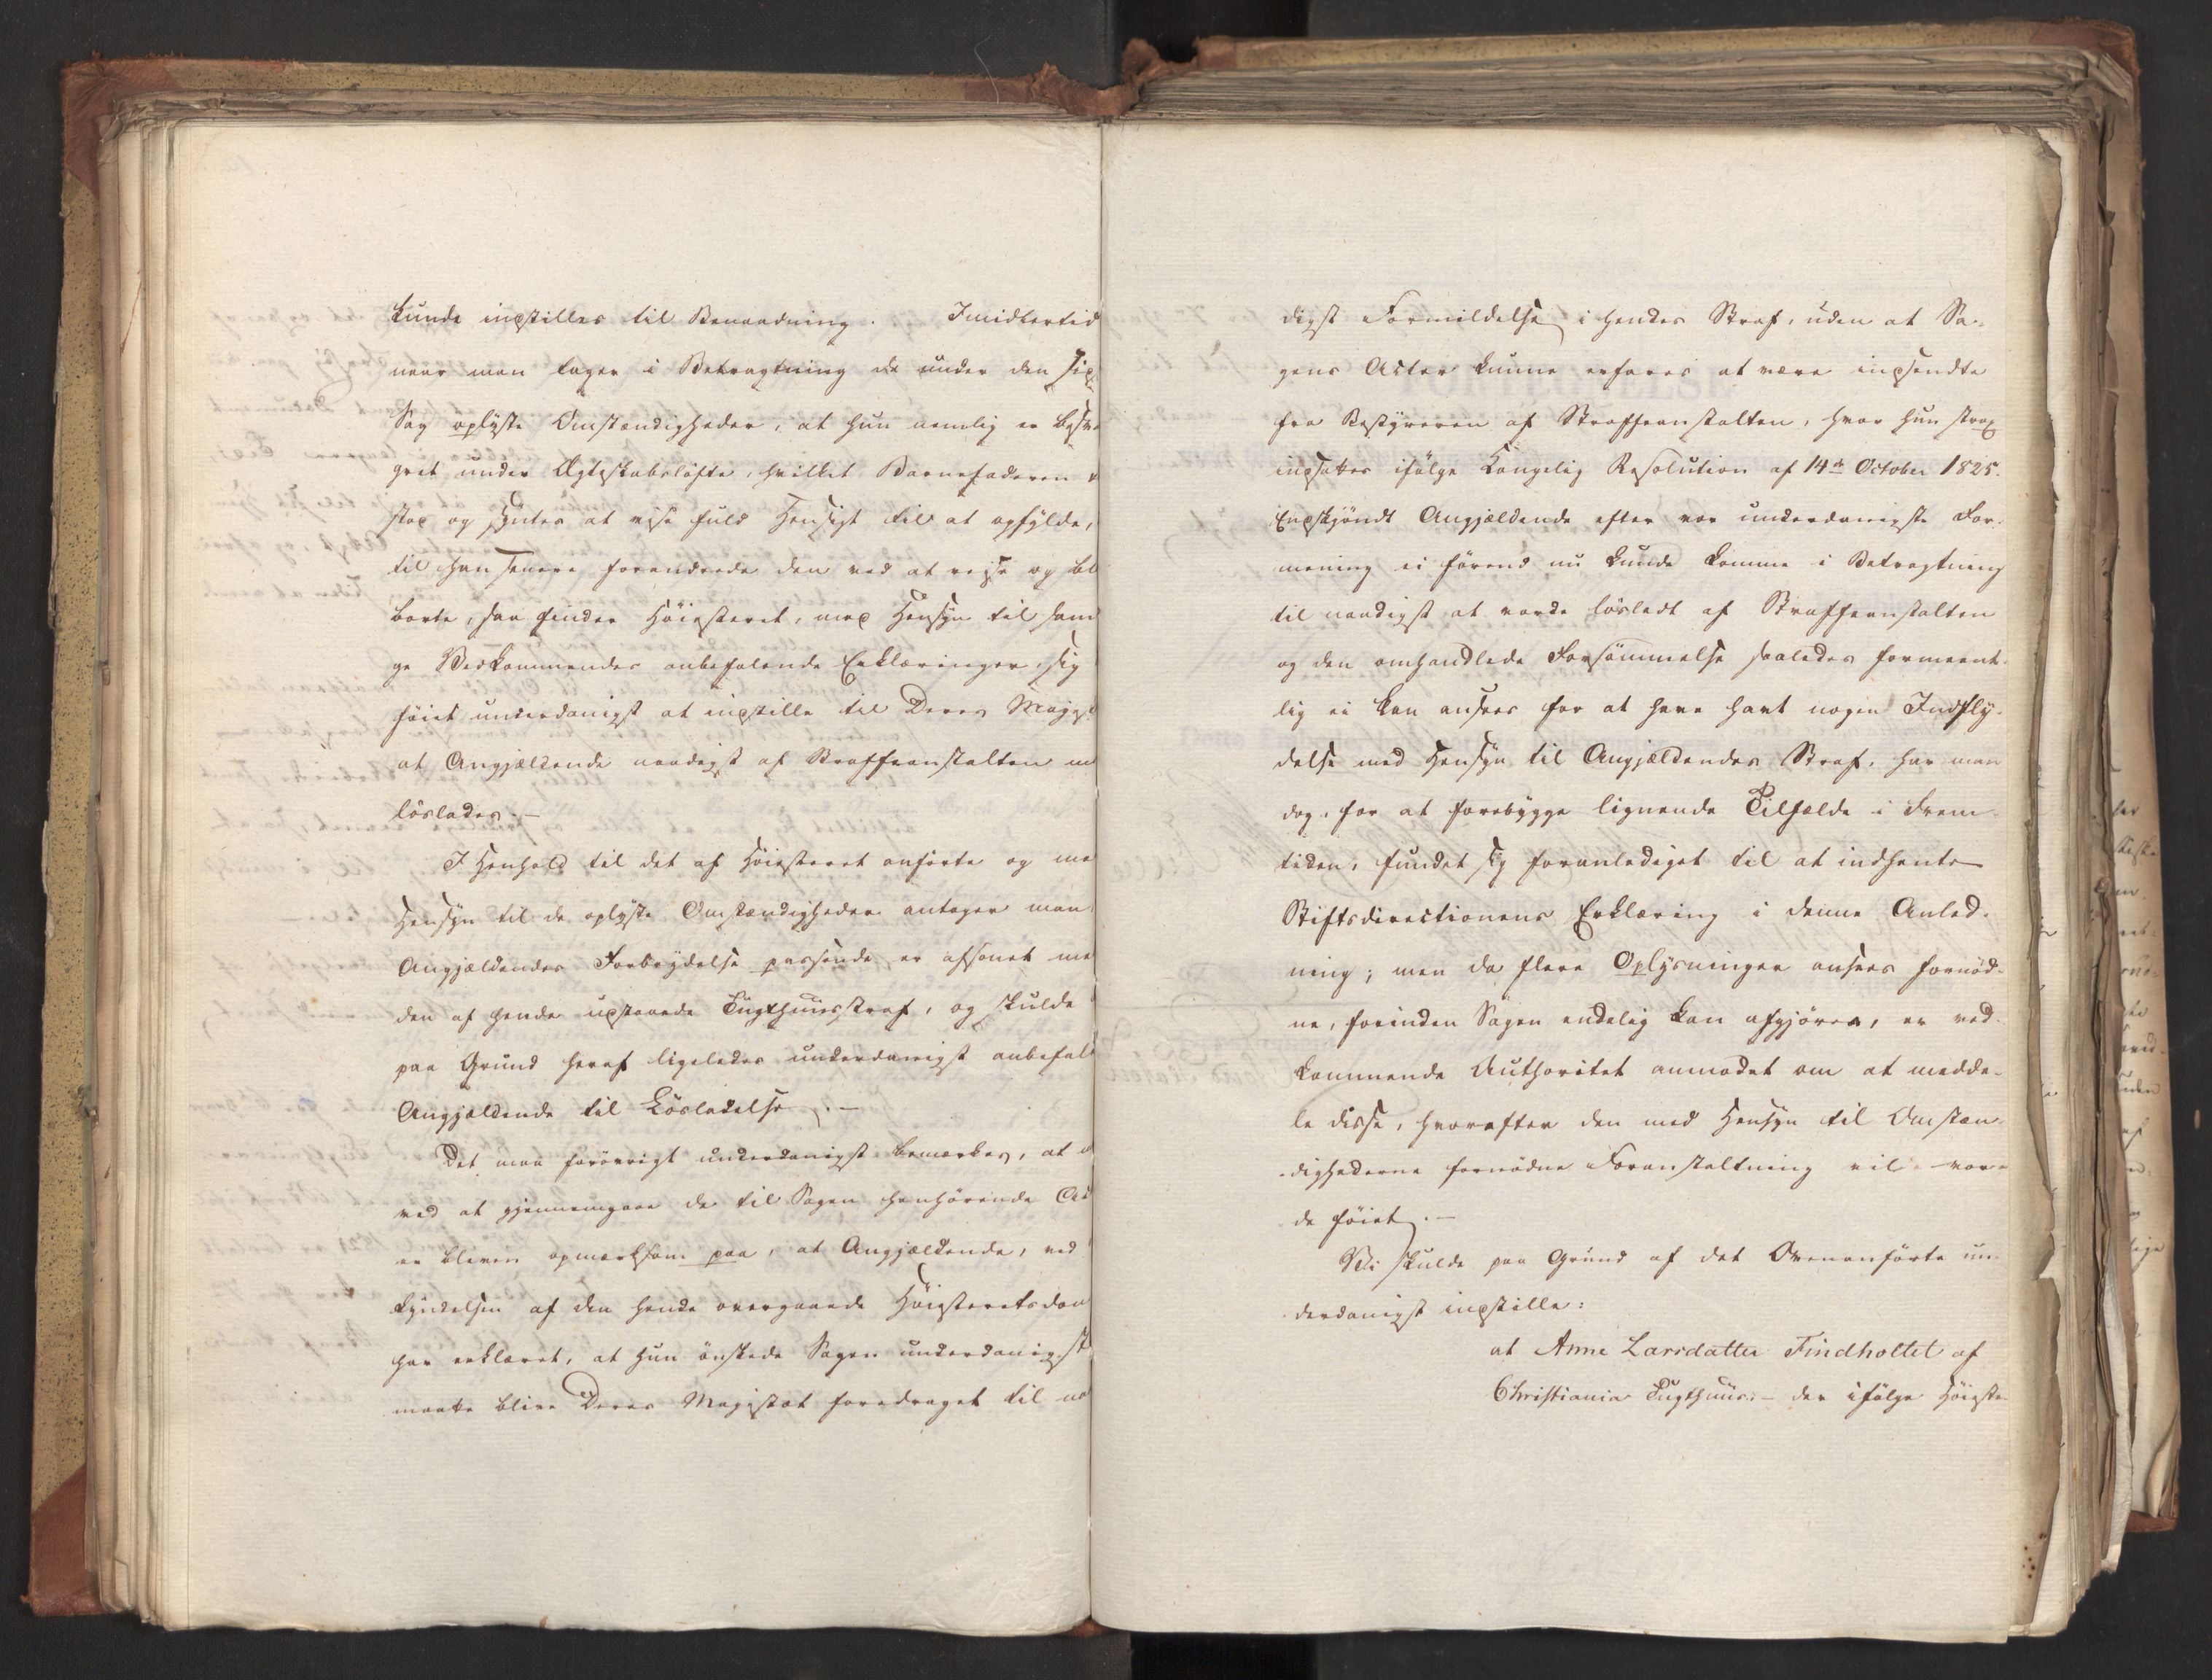 kunde indstilles til Benaadning. Imidlertid
naar man tager i Betragtning de under den sid
Sag oplyste Omstændigheder, at hun nemlig er besva
gret under Ægteskabsløfte, hvilket Barnefaderen
stod og syntes at vise fuld Hensigt til at opfylde,
til han senere forandrede den ved at reise og bl
borte, saa finder Høiesteret, med Hensyn til sam
ge Vedkommendes anbefalende Erklæringer, sig
føiet underdanigst at indstille til Deres Majest
at Angjældende naadigst af Straffeanstalten m
løslades.-
I Henhold til det af Høiesteret anførte og me
Hensyn til de oplyste Omstændigheder antager man
Angjældendes Forbrydelse passende er afsonet me
den af hende udstaaede Tugthuusstraf, og skulde
paa Grund heraf ligeledes underdanigst anbefale
Angjældende til Løsladelse.-
Det maa forøvrigt underdanigst bemærkes, at
ved at gjennemgaae de til Sagen henhørende Act
er bleven opmærksom paa, at Angjældende, ved
kyndelsen af den hende overgaaede Høiesteretsdom
har erklæret, at hun ønskede Sagen underdanigst
maatte blive Deres Majestæt foredraget til na
digst Formildelse i hendes Straf, uden at Sa-
gens Acter kunne erfares at være indsendte
fra Bestyreren af Straffeanstalten, hvor hun strax
indsattes ifølge Kongelig Resolution af 14de October 1825.
Endskjøndt Angjældende efter vor underdanigste For-
mening ei førend nu kunde komme i Betragtning
til naadigst at vorde løsladt af Straffeanstalten
og den omhandlede Forsømmelse saaledes formeent-
lig ei kan ansees for at have havt nogen Indfly-
delse med Hensyn til Angjældendes Straf, har man
dog, for at forebygge lignende Tilfælde i Frem-
tiden, fundet sig foranlediget til at indhente
Stiftsdirectionens Erklæring i denne Anled-
ning; men da flere Oplysninger ansees fornød-
ne, forinden Sagen endelig kan afgjøres, er ved-
kommende Authoritet anmodet om at medde-
le disse, hvorefter den med Hensyn til Omstæn-
dighederne fornødne Foranstaltning vil vor-
de føiet.-
Vi skulde paa Grund af det Ovenanførte un-
derdanigst indstille:
at Anne Larsdatter Findholtet af
Christiania Tugthuus:- der ifølge Høieste-